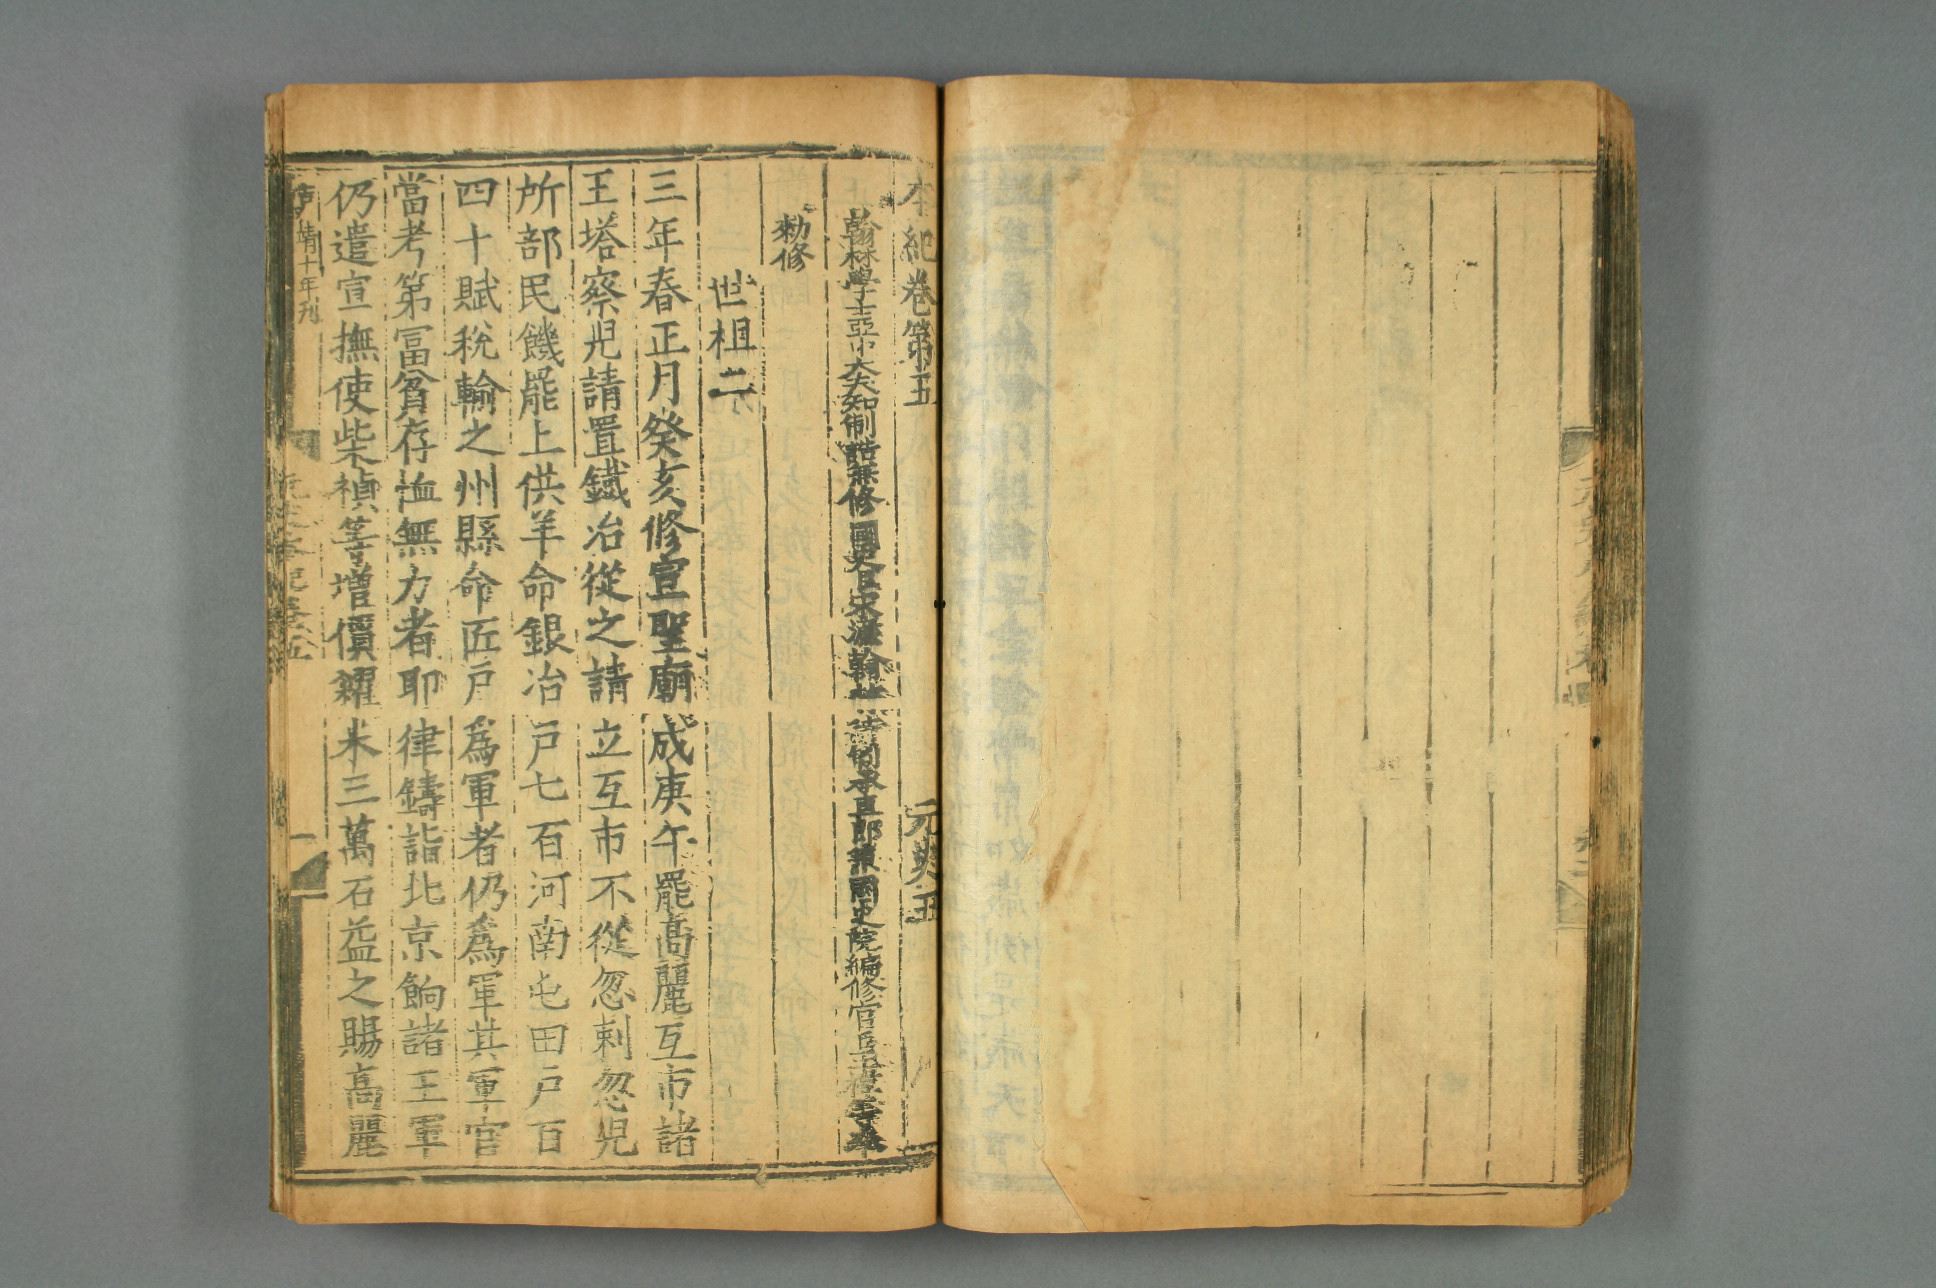 本紀卷第五 元史五
翰林學士亞中大夫知制誥兼修國史臣宋濂翰林待制承直郎兼國史院編修官臣王禕等奉
勑修
世祖二
三年春正月癸亥修宣聖廟成庚午罷高麗互市諸
王塔察兒請置鐵冶從之請立互市不從忽剌忽兒
所部民饑罷上供羊命銀冶戶七百河南屯田戶百
四十賦稅輸之州縣命匠戶爲軍者仍爲軍其軍官
當考第富貧存恤無力者耶律鑄詣北京餉諸王軍
仍遣宣撫使柴禎等增價糴米三萬石益之賜高麗
靖十年刊
元史本紀卷五